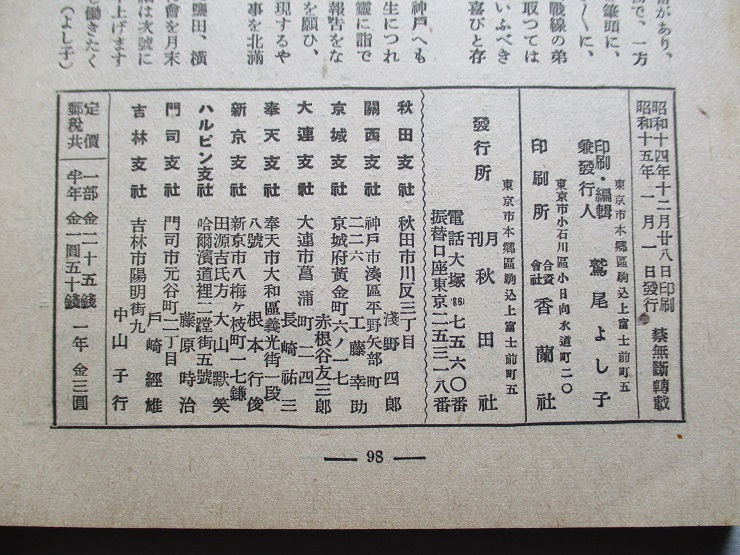 番があり、
動で、一方
筆頭に、
さくに、
戰線の弟
取つては
いふべき
喜びと存
神戸へも
生につれ
靈に詣で
報告をな
を願ひ、
現するや
事を北滿
鹽田、横
會を月末
は次號に
上げます
も働きたく
(よし子)
昭和十四年十二月廿八日印刷
昭和十五年一月一日發行
禁無斷轉載
東京市本郷區駒込上富士前町五
印刷・編輯
兼發行人 鷲尾よし子
東京市小石川區小日向水道町二〇
印刷所 合資會社 香蘭社
東京市本郷區駒込上富士前町五
發行所 月刊 秋田社
電話大塚(86)七五六〇番
振替口座東京二五三一八番
秋田支社 秋田市川反三丁目
淺野四郎
關西支社 神戸市湊區平野矢部町
二二六 工藤幸助
京城支社 京城府黄金町六ノ一七
赤根谷友三郎
大連支社 大連市菖蒲町二四
長崎祐三
奉天支社 奉天市大和區義光街一段
八號 根本行俊
新京支社 新京市八梅ケ枝町一七鎌
田源吉氏方 大山默笑
ハルピン支社 哈爾濱道裡二蹚街五號
藤原時治
門司支社 門司市元谷町二丁目
戸崎經雄
吉林支社 吉林市陽明街九
中山子行
定價 一部金二十五錢 一年金三圓
郵税共 半年金一圓五十錢
— 98 —